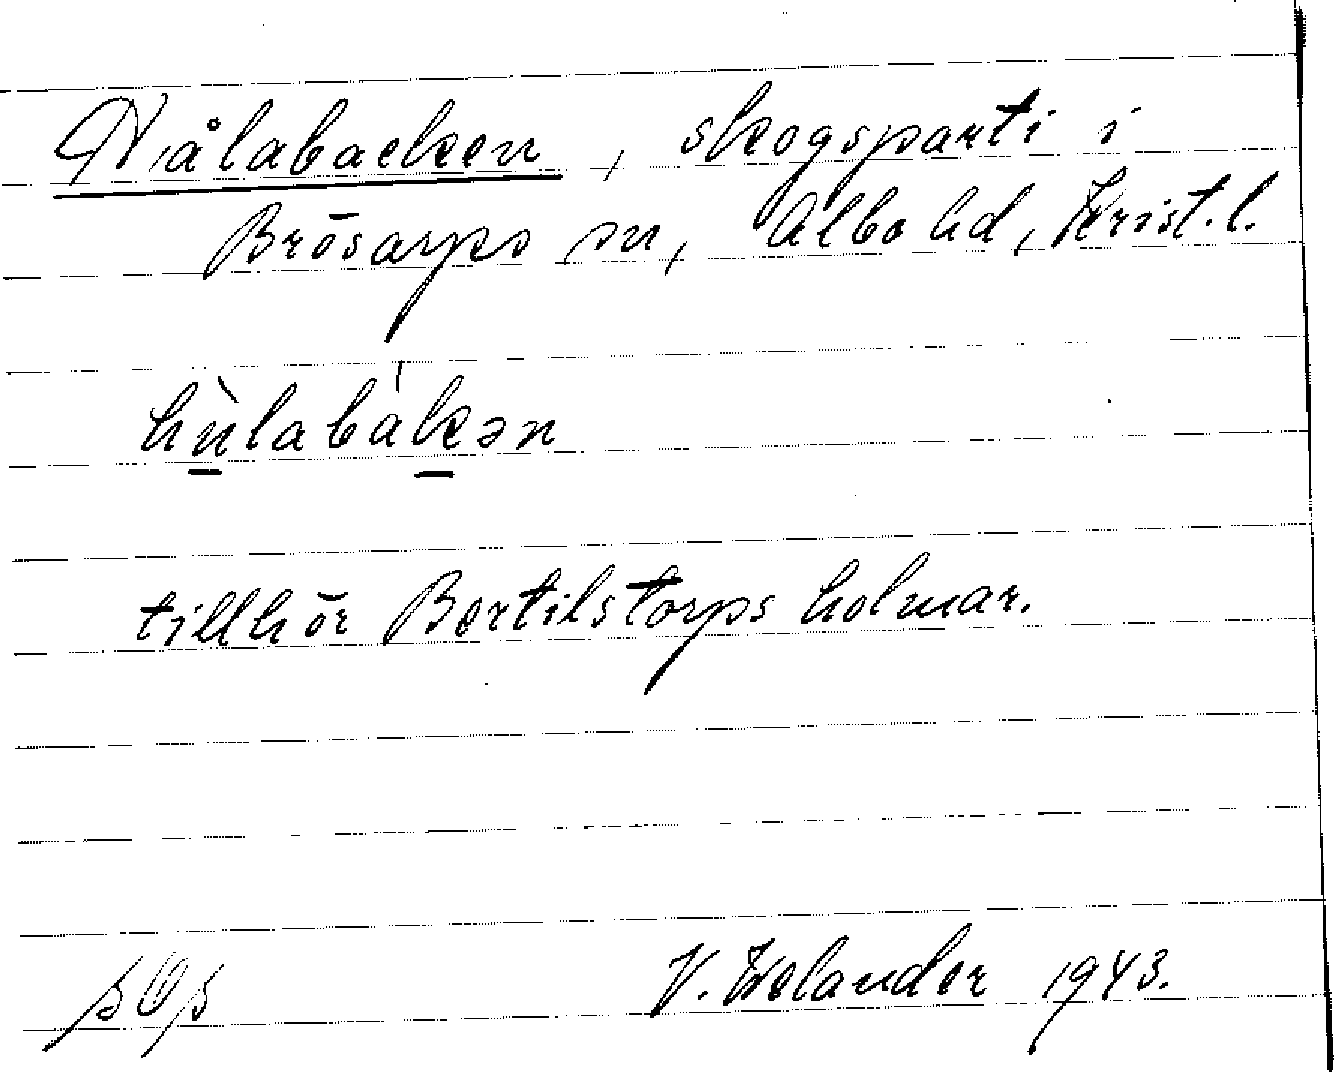 Hålabacken, skogsparti i
Brösarps sn, Albo hd, Krist. l.
tillhör Bertilstorps holmar.
V. Welander 1943.